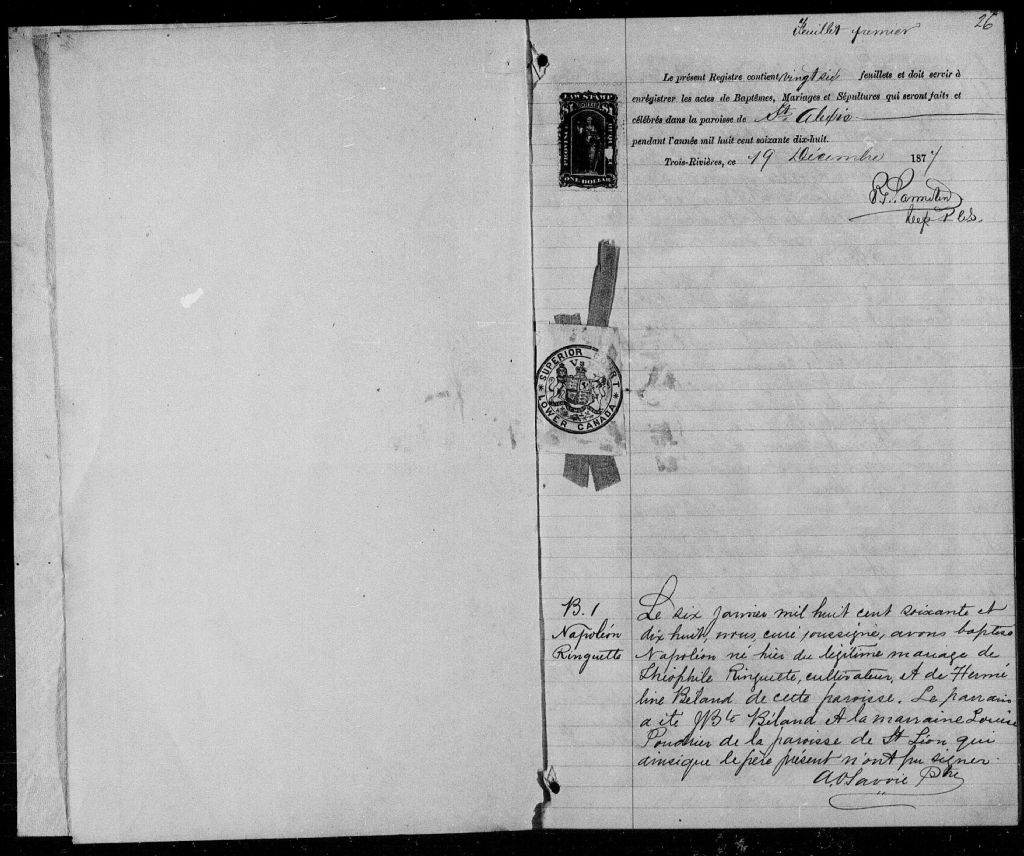 26
Feuillet premier
Le présent Registre contient vingt six feuillets et doit servir à
enrégistrer les actes de Baptêmes, Mariages et Sépultures qui seront faits et
célébrés dans la paroisse de St. Alexis
pendant l'année mil huit cent soixante dix-huit.
Trois-Rivières, ce 19 Décembre 1877
Dep P.C.S.
LAW STAMP
$1 $1
PROVINCE
ONE DOLLAR
SUPERIOR COURT
LOWER CANADA
B. 1
Napoléon
Ringuette
Le six janvier mil huit cent soixante et
dix huit, nous, curé soussigné, avons baptisé
Napoléon né hier du légitime mariage de
Théophile Ringuette, cultivateur, et de Hermé
line Béland de cette paroisse. Le parrain
a été JBte Béland et la marraine Louise
de la paroisse de St Léon qui
ainsique le père présent n'ont pu signer.
A.O Savoie Ptre